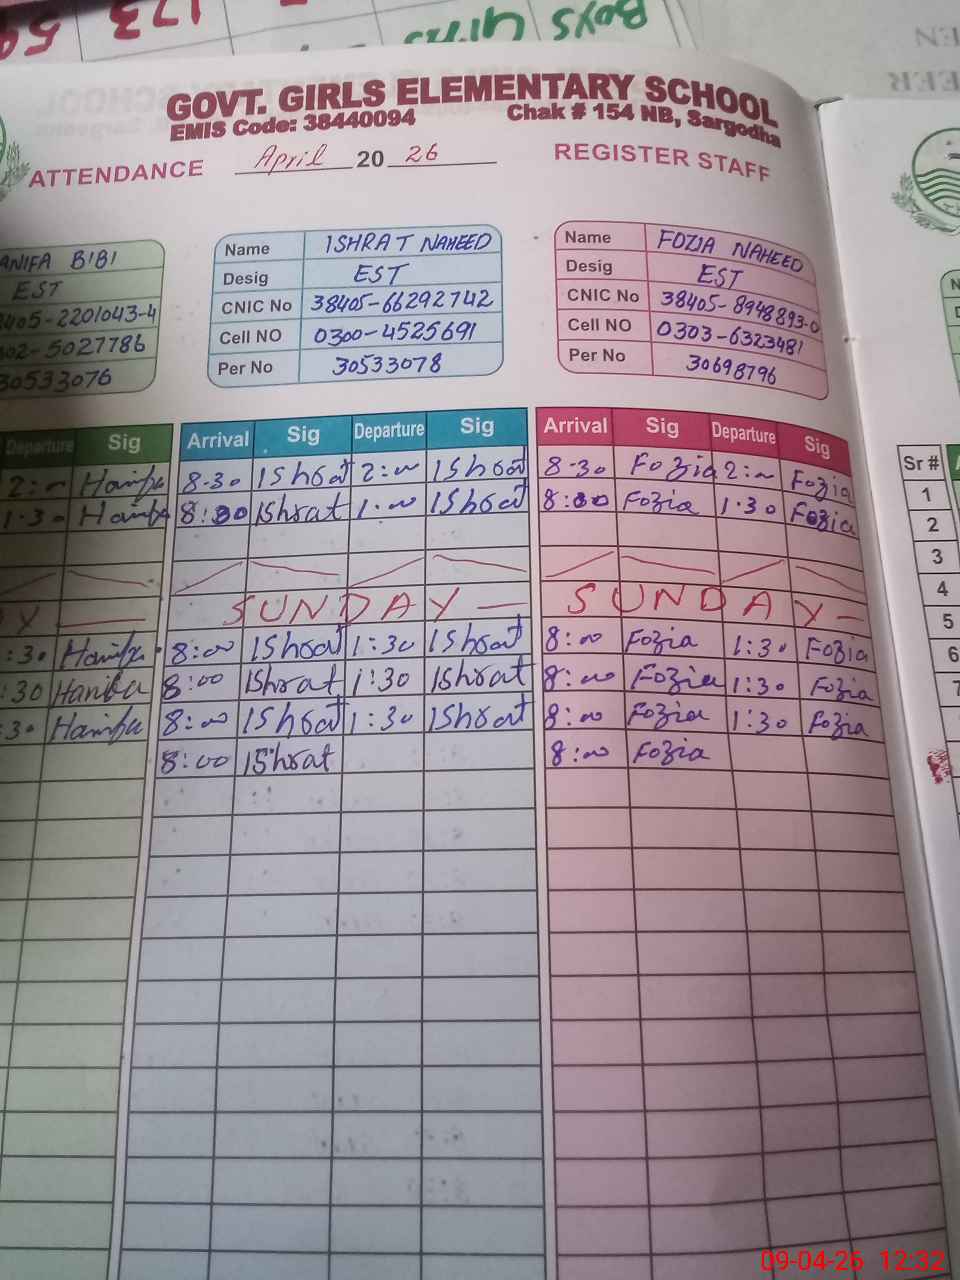 BOYS GIRLS
173
59
GOVT. GIRLS ELEMENTARY SCHOOL
EMIS Code: 38440094 Chak # 154 NB, Sargodha
ATTENDANCE April 20 26 REGISTER STAFF
ANIFA BIBI
EST
405-2201043-4
02-5027786
30533076
Name ISHRAT NAHEED
Desig EST
CNIC No 38405-66292742
Cell NO 0300-4525691
Per No 30533078
Name FOZIA NAHEED
Desig EST
CNIC No 38405-8948893-0
Cell NO 0303-6323481
Per No 30698796
Departure Sig Arrival Sig Departure Sig Arrival Sig Departure Sig Sr #
2:00 Hanifa 8-30 IShrat 2:00 IShrat 8-30 Fozia 2:00 Fozia 1
1.30 Hanifa 8:00 IShrat 1.00 IShrat 8:00 Fozia 1.30 Fozia 2
3
4
Y — SUNDAY — SUNDAY — 5
:30 Hanifa 8:00 IShrat 1:30 IShrat 8:00 Fozia 1:30 Fozia 6
:30 Hanifa 8:00 IShrat 1:30 IShrat 8:00 Fozia 1:30 Fozia 7
:30 Hanifa 8:00 IShrat 1:30 IShrat 8:00 Fozia 1:30 Fozia
8:00 IShrat 8:00 Fozia
09-04-26 12:32